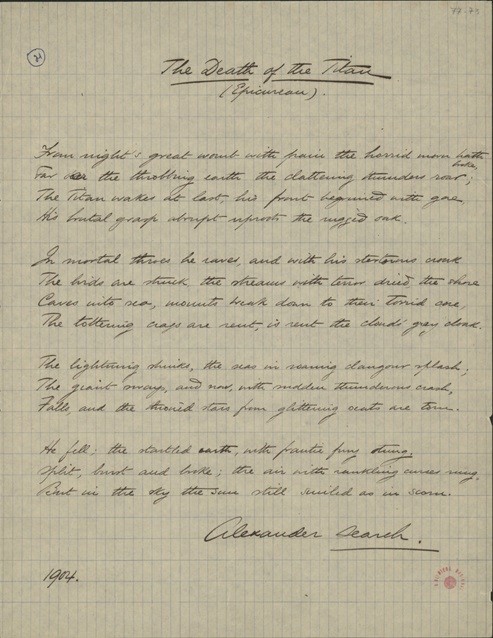 78-71
21
The Death of the Titan
(Epicurean).
From night's great womb with pain the horrid morn hath
broke,
Far o'er the throbbing earth the clattering thunders roar;
The Titan wakes at last, his front begrimed with gore
His brutal grasp abrupt uproots the rugged oak.
In mortal throes he raves, and with his stertorous croak
The birds are struck, the streams with terror dried, the shore
Caves into sea, mounts break down to their torrid core,
The tottering crags are rent, is rent the clouds' gray cloak.
The lightnings shrink, the seas in roaring clangour splash;
The giant sways, and now, with sudden thunderous crash,
Falls, and the throned stars from glittering seats are torn.
He fell: the startled earth, with frantic fury stung,
Split, burst and broke; the air with rankling curses rung,
But in the sky the sun still smiled as in scorn.
Alexander Search.
1904.